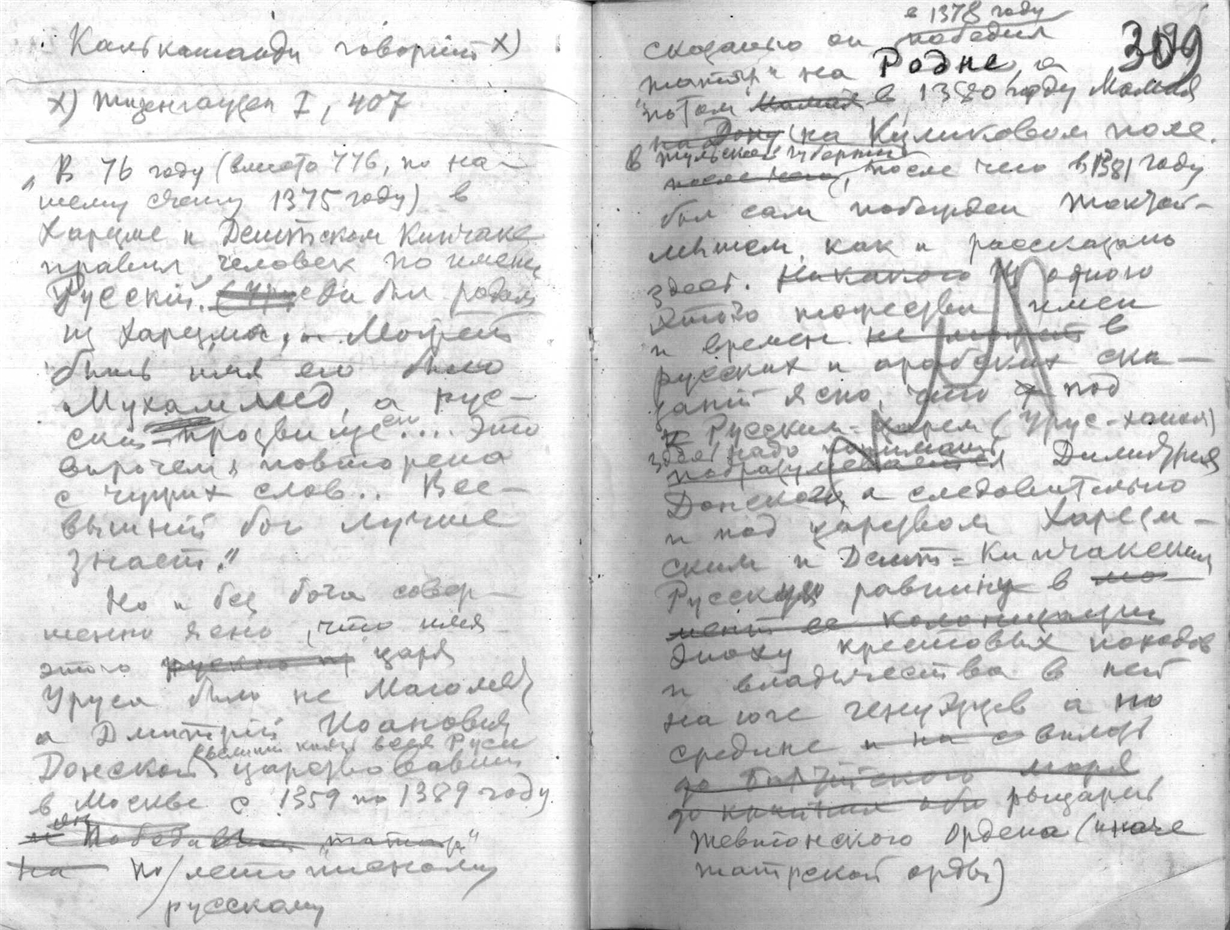 Калькашанди говорит х)
х) Тизенгаузен I, 407
„В 76 году (вместо 776, по на-
шему счету 1375 году) в
Харезме и Дештском Кипчаке
правил человек по имени
Русский. Он был родом
из Харезма, Может
быть имя его было
Мухаммед, а рус-
ский прозвище... Это
впрочем, повторено
с чужих слов... Все-
вышний бог лучше
знает."
Но и без бога совер-
шенно ясно, что имя
этого русского царя
Уруса было не Магомед
а Дмитрий Иоанович
великий князь всея Руси
Донской царствовавший
в Москве с 1359 по 1389 году
Победивший „татар"
на по летописному
русскому
в 1378 году
309
сказанию он победил
„татар" на Родне, а
потом Мамая в 1380 году Мамая
на Дону (на Куликовом поле
в Тульской губернии
после чего, после чего в 1381 году
был сам побежден Тохтай-
мышем, как и рассказано
здесь. Никакого Из одного
этого тожества имен
и времен не может в
русских и арабских ска-
заний ясно, что под
Русским-Царем (Урус-ханом)
здесь надо понимать
подразумевается Димитрия
Донского, а следовательно
и под царством Харезм-
ским и Дешт-Кипчакским
Русскую равнину в мо-
мент ее колонизации
эпоху крестовых походов
и владычества в ней
на юге генуэзцев а по
средине и на с вплоть
до Балтийского моря
рыцарей
Тевтонского Ордена (иначе
татрской орды)